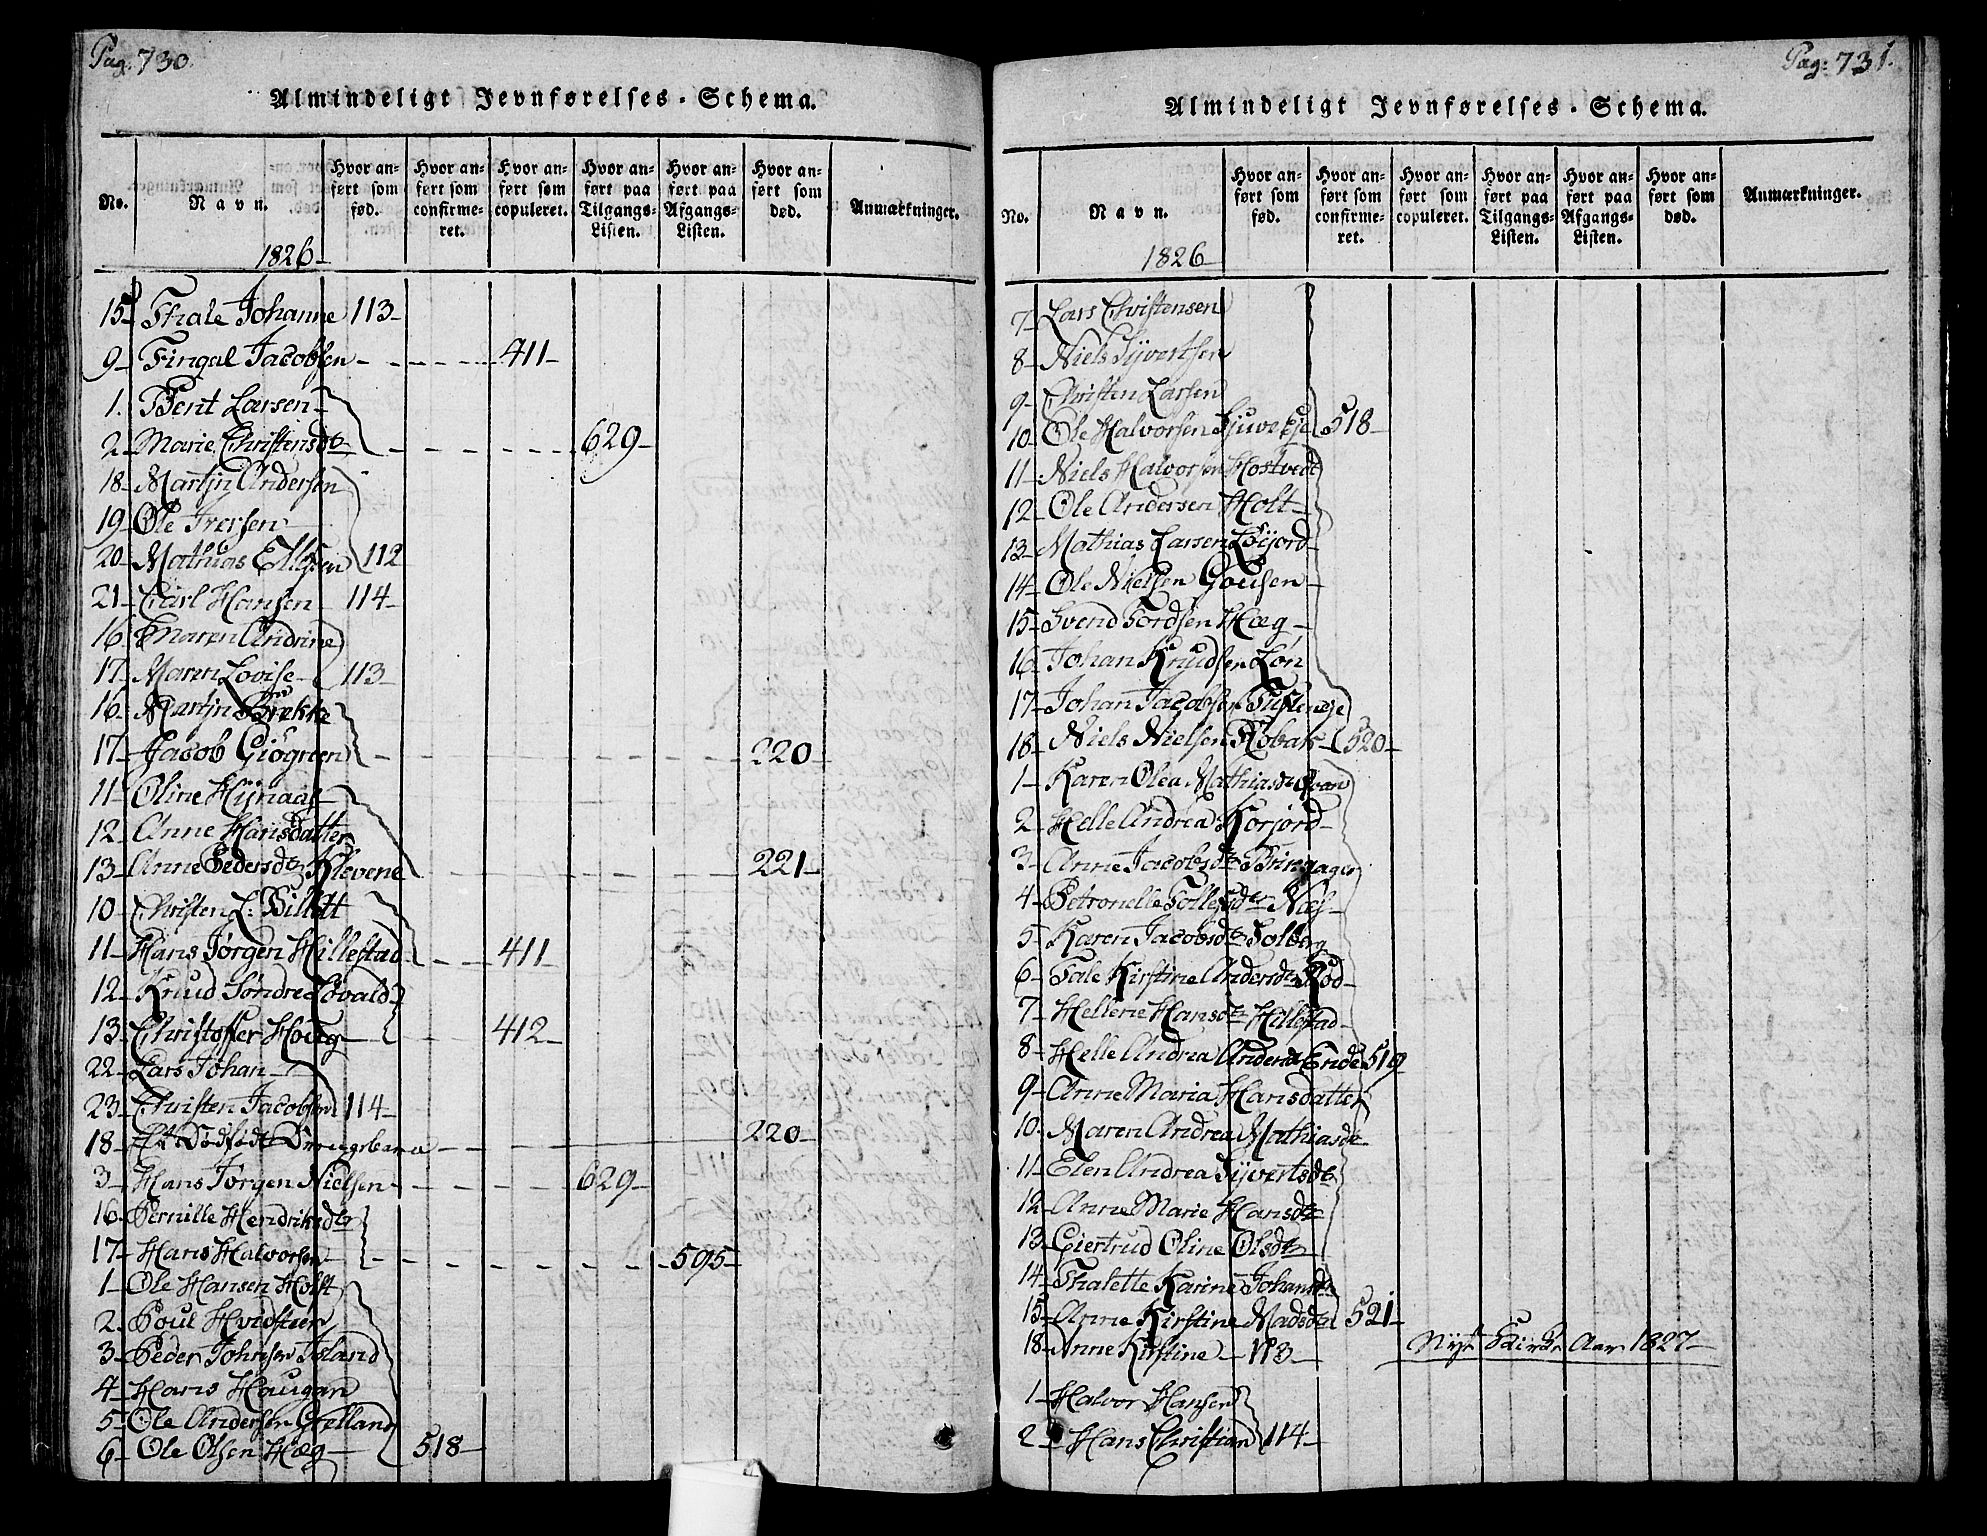 Pag. 730.
Almindeligt Jevnførelses-Schema.
No.
Navn.
1826
Hvor anført som fød.
Hvor anført som confirmeret.
Hvor anført som copuleret.
Hvor anført paa Tilgangs-Listen.
Hvor anført paa Afgangs-Listen.
Hvor anført som død.
Anmærkninger.
15 Thale Johanne 113
9 Fingal Jacobsen 411
1. Bent Larsen
2 Marie Christensdtr 629
18 Martjn Andersen
19 Ole Iversen
20 Mathias Ellefsen 112
21 Carl Hansen 114
16 Maren Andrine
17 Maren Lovise 113
16 Martjn Brekke
17 Jacob Giøgreen 220
11 Oline
12 Anne Hansdatter
13 Anne Pedersdtr Klevene 221
10 Christen L: Billett
11 Hans Jørgen Hillestad 411
12 Knud Søndre Løvald
13 Christoffer Hoeg 412
22 Lars Johan
23 Christen Jacobsen 114
18 Et Dødfødt Drengebarn 220
3 Hans Jørgen Nielsen 629
16 Pernille Hendriksdtr
17 Hans Halvorsen 595
1 Ole Hansen Holt
2 Poul Hvidsteen
3 Peder Johnsen Island
4 Hans Haugan
5 Ole Andersen Grelland
6 Ole Olsen Hæg 518
Pag: 731.
Almindeligt Jevnførelses-Schema.
No.
Navn.
1826
Hvor anført som fød.
Hvor anført som confirmeret.
Hvor anført som copuleret.
Hvor anført paa Tilgangs-Listen.
Hvor anført paa Afgangs-Listen.
Hvor anført som død.
Anmærkninger.
7 Lars Christensen
8 Niels Syvertsen
9 Christen Larsen
10 Ole Halvorsen 518
11 Niels Halvorsen Hostvedt
12 Ole Andersen Holt
13 Mathias Larsen Løijord
14 Ole Nielsen Gousen
15 Svend Tordsen Hæg
16 Johan Knudsen Løn
17 Johan Jacobsen
18 Niels Nielsen 520
1 Karen Olea Mathiasdtr
2 Helle Andrea Korjord
3 Anne Jacobsdtr Bringager
4 Petronelle Tollefsdtr Næs
5 Karen Jacobsdtr Solberg
6 Tale Kirstine Andersdtr Rød
7 Hellene Hansdtr Hillestad
8 Helle Andrea Andersdtr 519
9 Anne Maria Hansdatter
10 Maren Andrea Mathiasdtr
11 Elen Andrea Syvertsdtr
12 Anne Marie Hansdtr
13 Giertrud Oline Olsdtr
14 Thalette Karine Johansdtr
15 Anne Kirstine Madsdtr 521
18 Anne Kirstine 113
Nyt Kirke Aar 1827
1 Halvor Hansen
2 Hans Christian 114